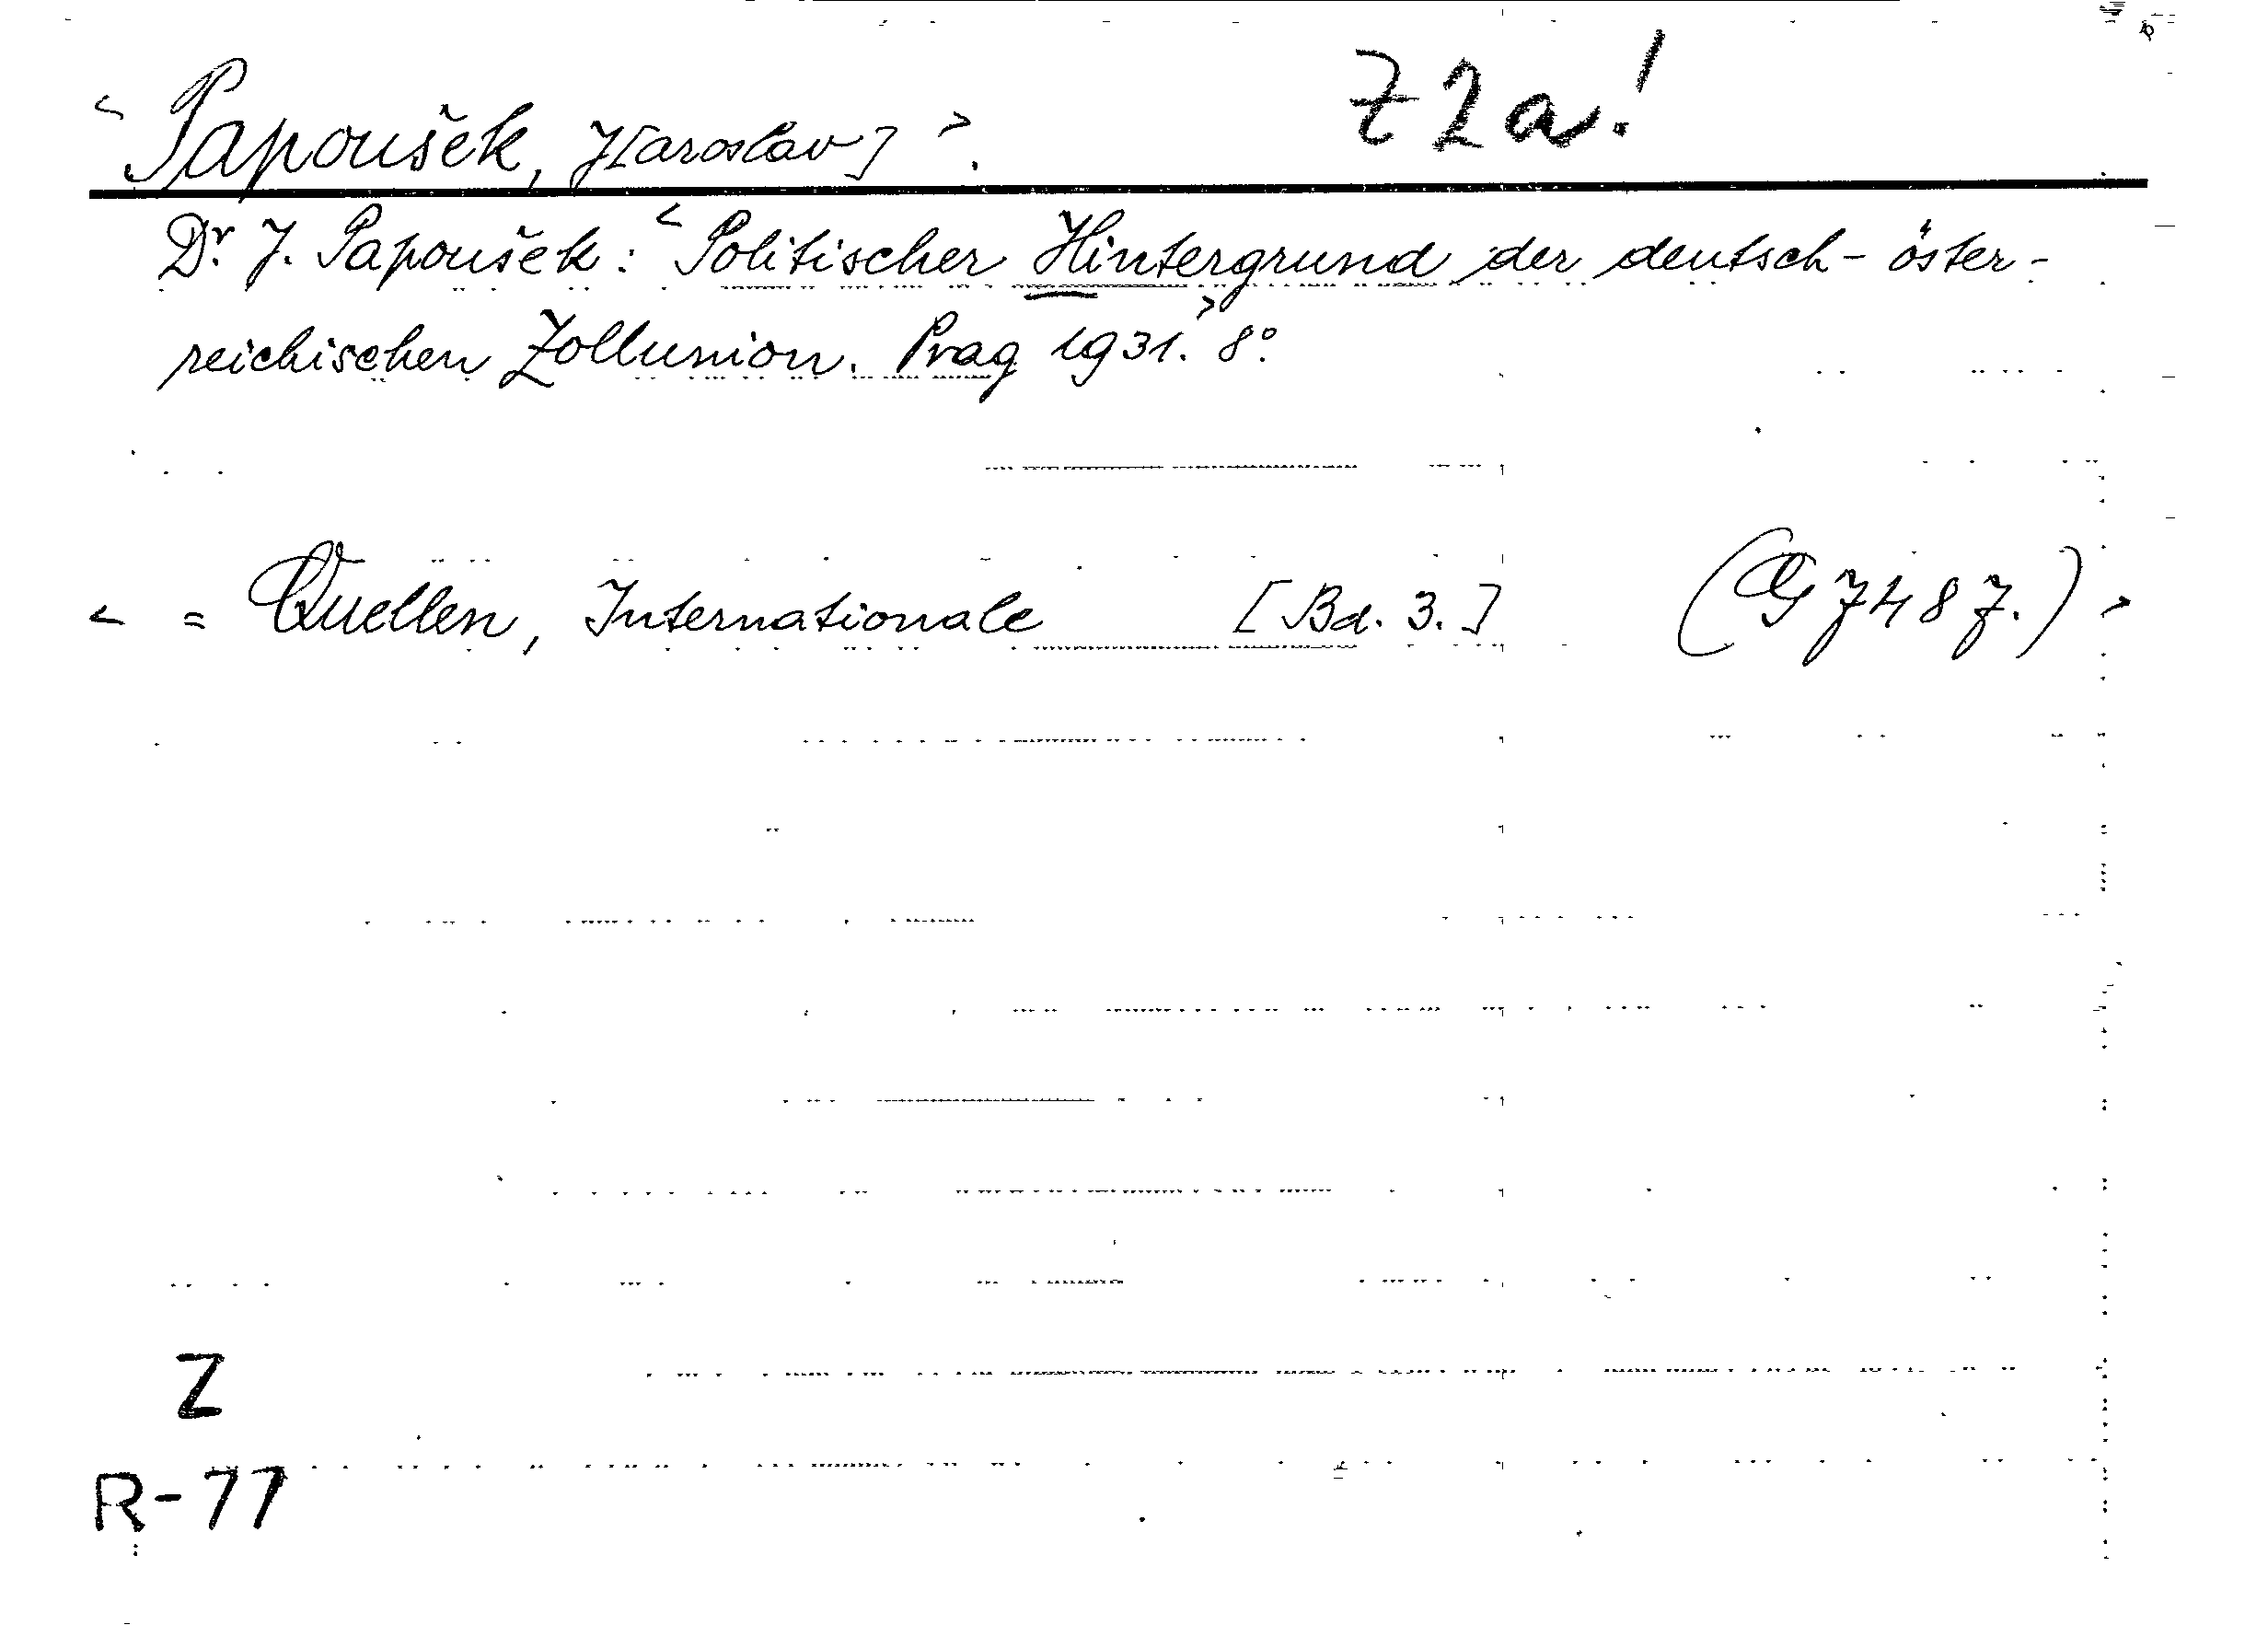 < Papoušek, J[aroslav] >. Z2a!
Dr. J. Papoušek: < Politischer Hintergrund der deutsch-öster-
reichischen Zollunion. Prag 1931. > 8°.
< = Quellen, Internationale [Bd. 3.] (G 7487.) >
Z
R-77